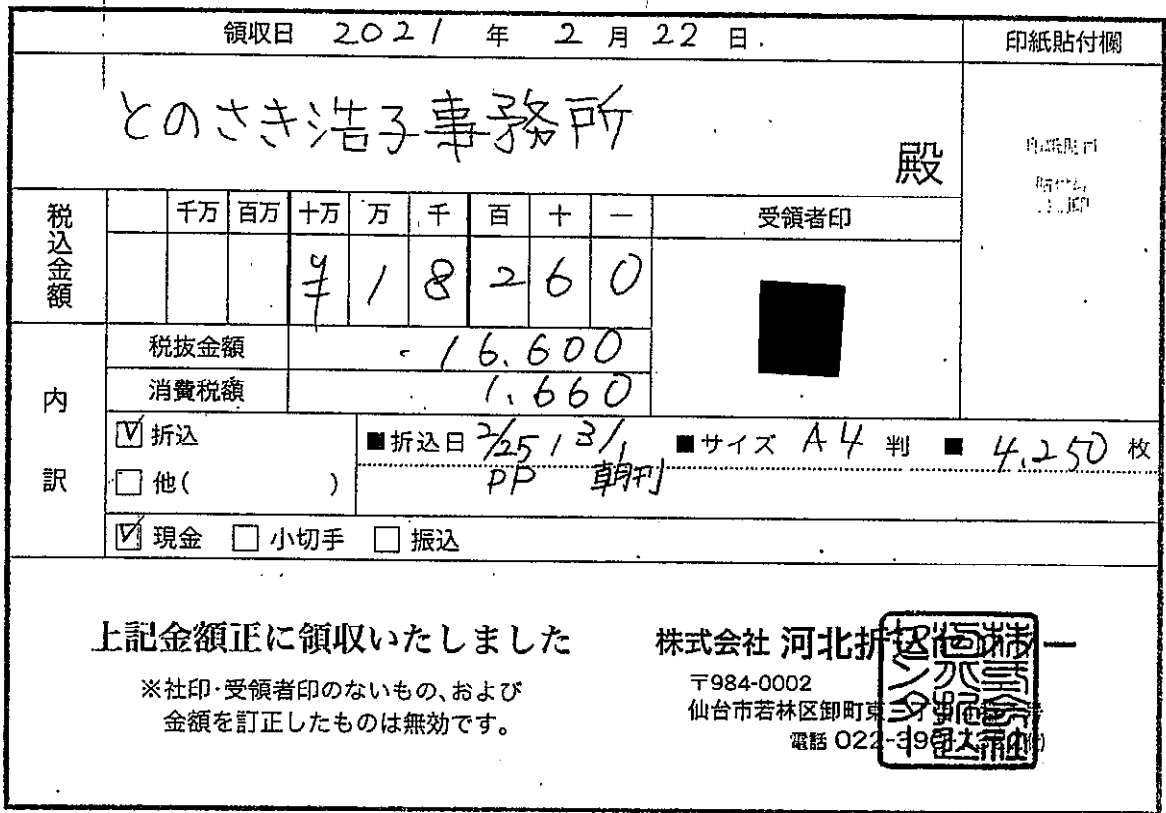 領収日 2021 年 2 月 22 日.
印紙貼付欄
とのさき浩子事務所 殿
税込金額
千万 百万 十万 万 千 百 十 一
受領者印
¥ 1 8 2 6 0
内訳
税抜金額 16.600
消費税額 1.660
☑ 折込 ■折込日 2/25, 3/1 ■サイズ A4 判 ■ 4.250 枚
PP 朝刊
□ 他( )
☑ 現金 □ 小切手 □ 振込
上記金額正に領収いたしました
※社印・受領者印のないもの、および
金額を訂正したものは無効です。
株式会社 河北折込センター
〒984-0002
仙台市若林区卸町東
電話 022-39
株式会社
河北折込
センター